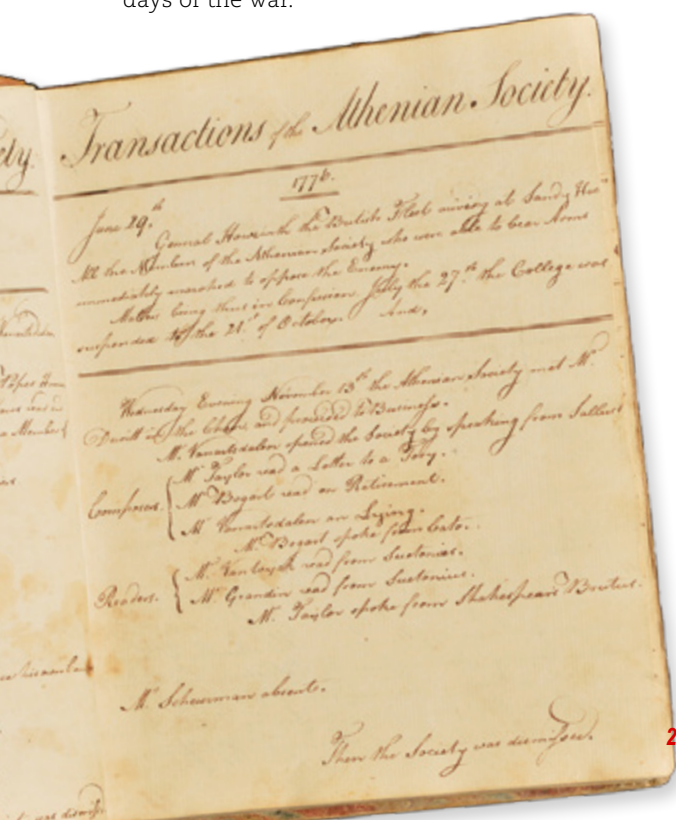 days of the war.
ety.
Transactions of the Athenian Society.
1776.
June 29.th
General Howe with the British Fleet arriving at Sandy
All the Members of the Athenian Society who were able to bear Arms
immediately marched to oppose the Enemy.
Matters being thus in Confusion July the 27.th the College was
suspended till the 21.st of October. And,
Wednesday Evening November 13th the Athenian Society met Mr.
Dewitt in the Chair and proceeded to Business.
Mr. Vanartsdalen opened the Society by speaking from Sallust
Mr. Taylor read a Letter to a Tory.
Composers. Mr. Bogart read on Retirement.
Mr. Vanartsdalen on Lying.
Mr. Bogart spoke from Cato.
Mr. read from Suetonius.
Readers. Mr. Grandin read from Suetonius.
Mr. Taylor spoke from Shakespears Brutus.
a Member
Mr. Schuurman absent.
Then the Society was dismissed.
2
was dismiss